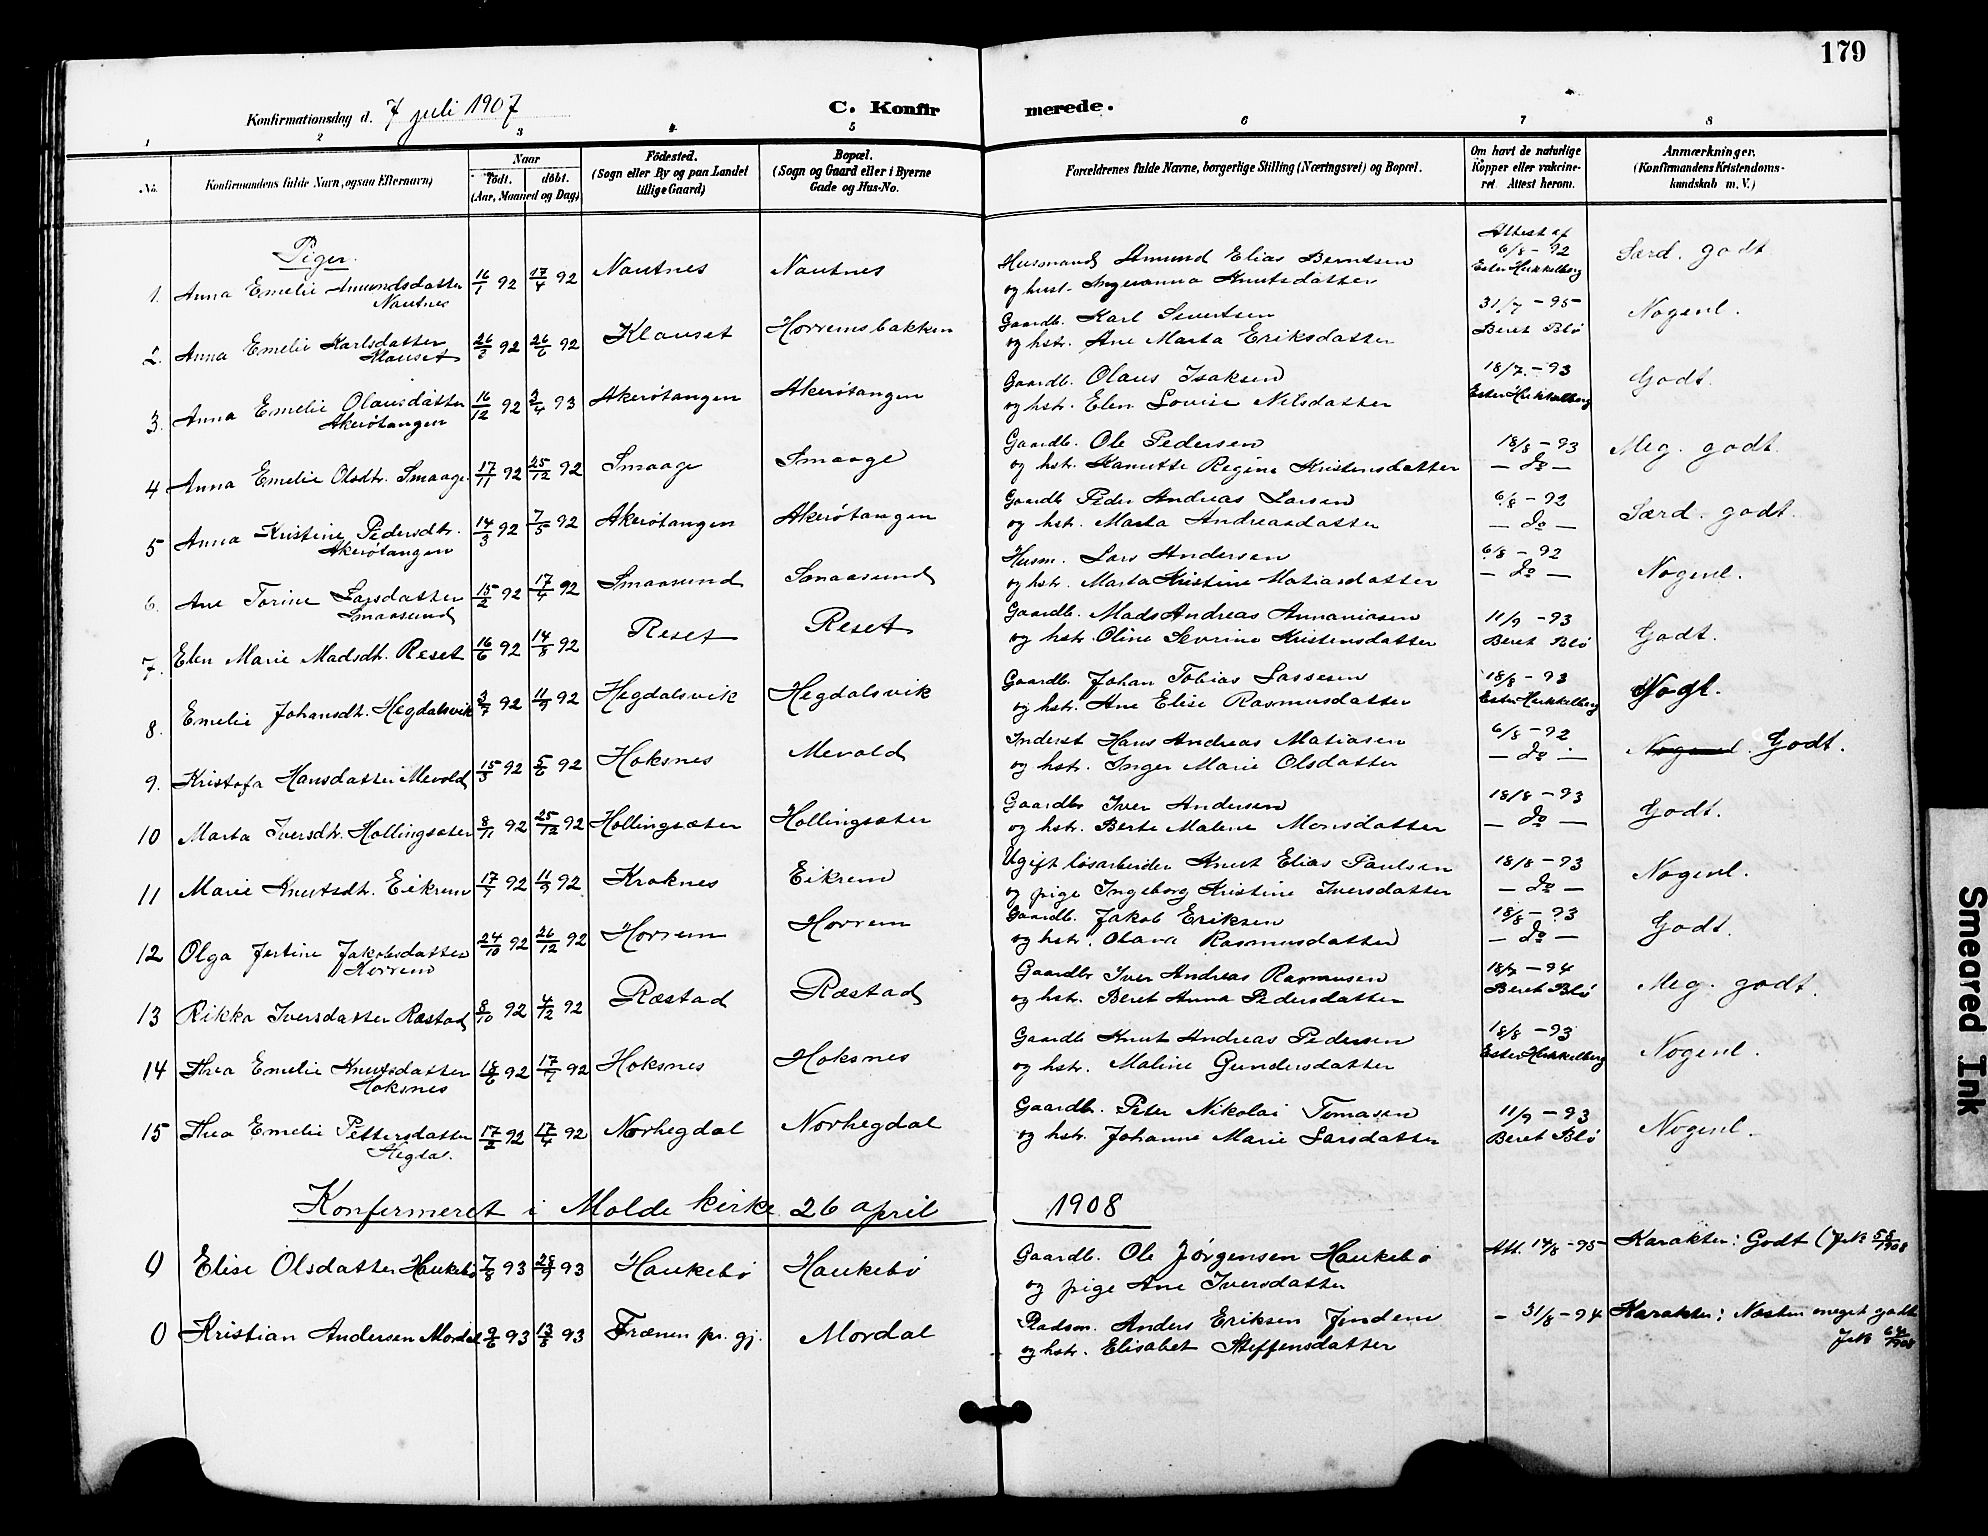 179
Konfirmationsdag d. 7 juli 1907 C. Konfirmerede.
1 2 3 4 5 6 7 8
No.
Konfirmandens fulde Navn, ogsaa Efternavn)
Naar
født. døbt.
(Aar, Maaned og Dag)
Fødested.
(Sogn eller By og paa Landet
tillige Gaard)
Bopæl.
(Sogn og Gaard eller i Byerne
Gade og Hus-No.
Forældrenes fulde Navne, borgerlige Stilling (Næringsvei) og Bopæl.
Om havt de naturlige
Kopper eller vakcine-
ret. Attest herom.
Anmærkninger.
(Konfirmandens Kristendoms-
kundskab m. V.)
Piger.
1. Anna Emelie Amundsdatter Nautnes 16/1 92 17/4 92 Nautnes Nautnes Husmand Amund Elias Berntsen
og hust. Ingeranna Knutsdatter Attest af 6/8 - 92 Ester Hekkelberg Særd. godt
2. Anna Emelie Karlsdatter Klauset 26/2 92 26/6 92 Klauset Horremsbakken Gaardb. Karl Sivertsen
og hstr. Ane Marta Eriksdatter 31/7 - 95 Beret Blø Nogenl.
3. Anna Emelie Olausdatter Akerøtangen 16/12 92 3/4 93 Akerøtangen Akerøtangen Gaardb. Olaus Isaksen
og hstr. Elen Lovise Nilsdatter 18/7 - 93 Ester Hekkelberg Godt.
4 Anna Emelie Olsdtr. Smaage 17/11 92 25/12 92 Smaage Smaage Gaardb. Ole Pedersen
og hstr. Kanutte Regine Kristensdatter 18/8 - 93 - do - Meg. godt.
5 Anna Kristine Pedersdtr. Akerøtangen 14/3 92 7/5 92 Akerøtangen Akerøtangen Gaardb Peder Andreas Larsen
og hstr. Marta Andreasdatter 6/8 - 92 - do - Særd. godt.
6. Ane Torine Larsdatter Smaasund 15/2 92 17/4 92 Smaasund Smaasund Husm. Lars Andersen
og hstr. Marta Kristine Matiasdatter 6/8 - 92 - do - Nogenl.
7. Elen Marie Madsdtr. Reset 16/6 92 14/8 92 Reset Reset Gaardb. Mads Andreas Annaniasen
og hstr. Oline Severine Kristensdatter 11/9 - 93 Beret Blø Godt.
8. Emelie Johansdtr. Hegdalsvik 3/7 92 11/9 92 Hegdalsvik Hegdalsvik Gaardb. Johan Tobias Lassesen
og hstr. Ane Elise Rasmusdatter 18/8 - 93 Ester Hekkelberg Nogl.
9. Kristofa Hansdatter Mevold 15/3 92 5/6 92 Hoksnes Mevold Inderst Hans Andreas Matiasen
og hstr. Inger Marie Olsdatter 6/8 - 92 - do - Nogenl. Godt.
10 Marta Iversdtr. Hollingsæter 8/11 92 25/12 92 Hollingsæter Hollingsæter Gaardbr Iver Andersen
og hstr. Berte Malene Monsdatter 18/8 - 93 - do - Godt.
11 Marie Knutsdtr. Eikrem 17/7 92 11/9 92 Kroknes Eikrem Ugift løsarbeider Knut Elias Paulsen
og pige Ingeborg Kristine Iversdatter 18/8 - 93 - do - Nogenl.
12 Olga Jertine Jakobsdatter Horrem 24/10 92 26/12 92 Horrem Horrem Gaardb. Jakob Eriksen
og hstr. Olava Rasmusdatter 18/8 - 93 - do - Godt.
13 Rikka Iversdatter Ræstad 8/10 92 4/12 92 Ræstad Ræstad Gaardbr Iver Andreas Rasmusen
og hstr. Beret Anna Pedersdatter 18/7 - 94 Beret Blø Meg. godt.
14 Thea Emelie Knutsdatter Hoksnes 18/6 92 17/7 92 Hoksnes Hoksnes Gaardb Knut Andreas Pedersen
og hstr. Maline Gundersdatter 18/8 - 93 Ester Hekkelberg Nogenl.
15 Thea Emelie Pettersdatter Hegdal. 17/2 92 17/4 92 Norhegdal Norhegdal Gaardbr. Peter Nikolai Tomasen
og hstr. Johanne Marie Larsdatter 11/9 - 93 Beret Blø Nogenl.
Konfermeret i Molde kirke 26 april 1908
0 Elise Olsdatter Haukebø 7/8 93 28/9 93 Haukebø Haukebø Gaardb. Ole Jørgensen Haukebø
og pige Ane Iversdatter Att. 14/8 - 95 Karakter: Godt (J.N. 58/1908
0 Kristian Andersen Mordal 9/6 93 13/8 93 Frænen pr. gj. Mordal Pladsm. Anders Eriksen Jendem
og hstr. Elisabet Steffensdatter - 31/8 - 94 Karakter: Næsten meget godt
J.N. 64/1908
Smeared Ink